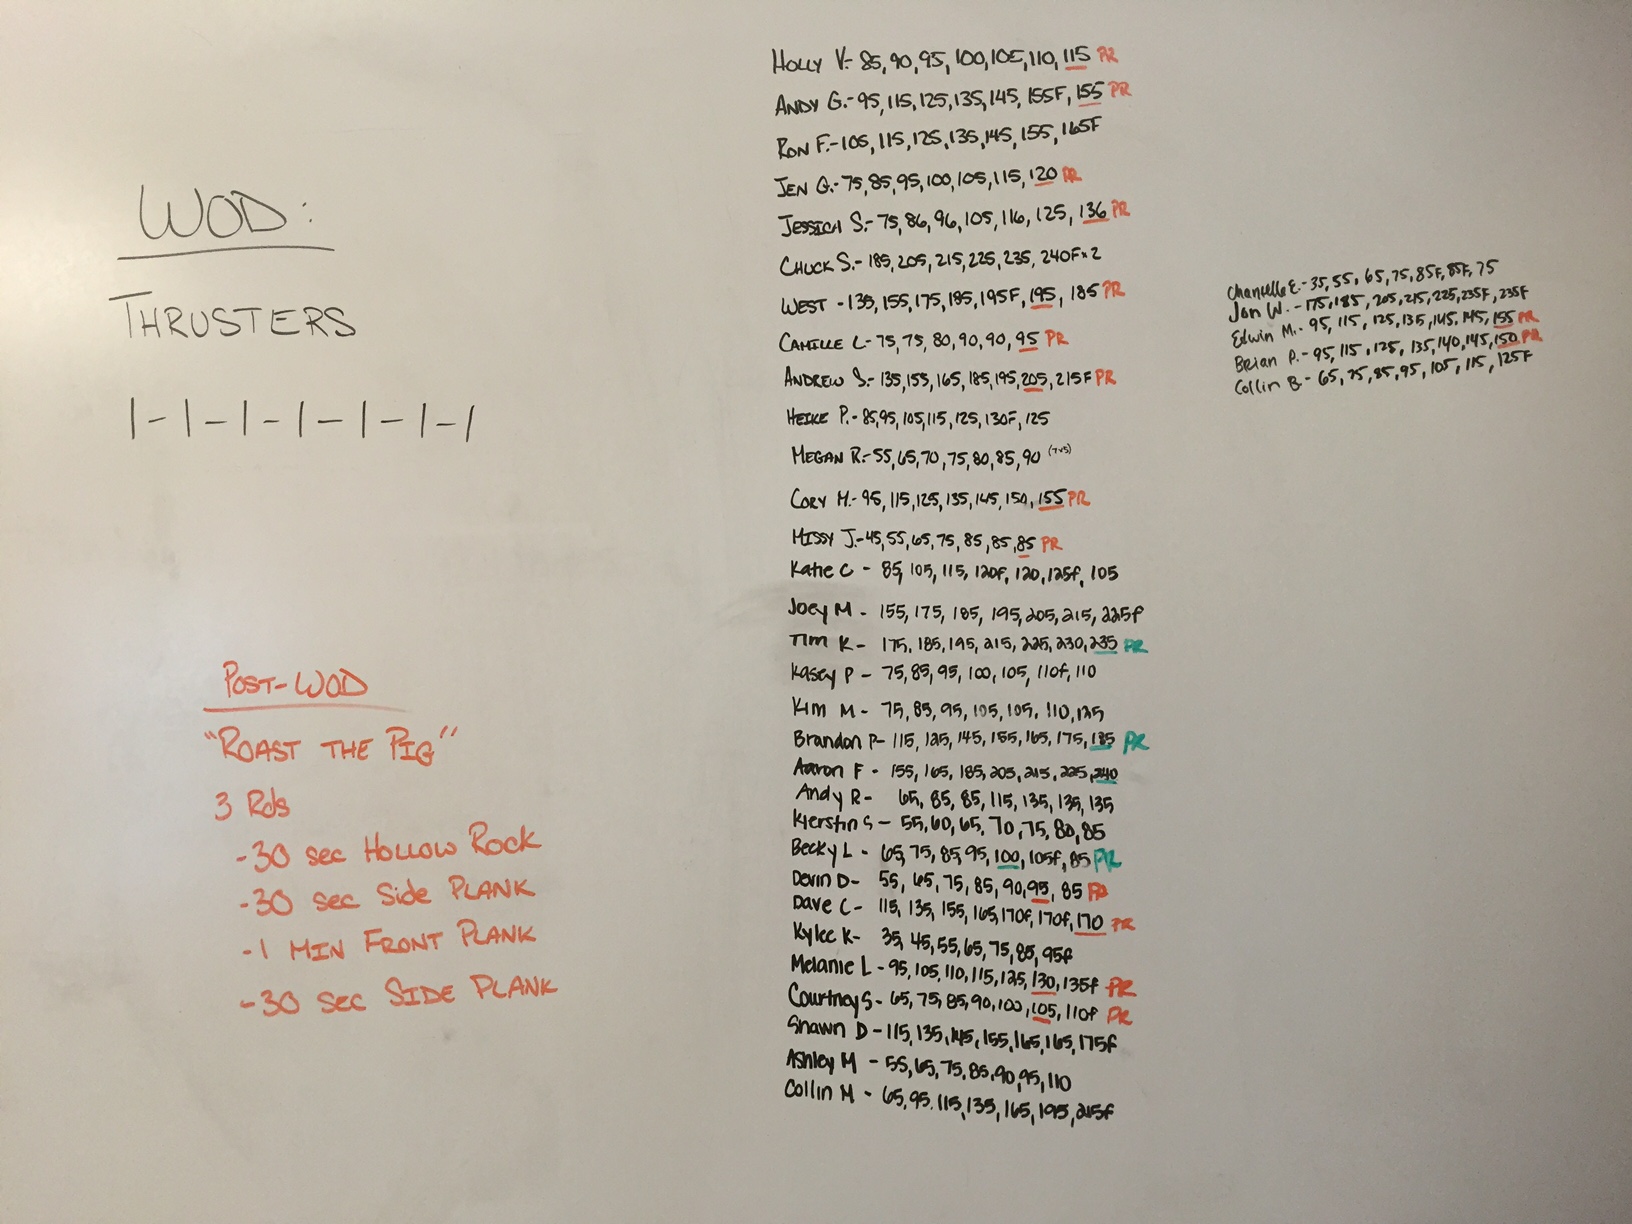 WOD:
THRUSTERS
1-1-1-1-1-1-1
POST-WOD
"ROAST THE PIG"
3 Rds
-30 sec HOLLOW ROCK
-30 sec Side PLANK
-1 MIN FRONT PLANK
-30 sec SIDE PLANK
HOLLY V.- 85, 90, 95, 100, 105, 110, 115 PR
ANDY G.- 95, 115, 125, 135, 145, 155F, 155 PR
RON F.- 105, 115, 125, 135, 145, 155, 165F
JEN G.- 75, 85, 95, 100, 105, 115, 120 PR
JESSICA S.- 75, 86, 96, 105, 116, 125, 136 PR
CHUCK S.- 185, 205, 215, 225, 235, 240F×2
WEST - 135, 155, 175, 185, 195F, 195, 185 PR
CAMILLE L- 75, 75, 80, 90, 90, 95 PR
ANDREW S.- 135, 155, 165, 185, 195, 205, 215F PR
HEIKE P.- 85, 95, 105, 115, 125, 130F, 125
MEGAN R.- 55, 65, 70, 75, 80, 85, 90
CORY M.- 95, 115, 125, 135, 145, 150, 155 PR
MISSY J.- 45, 55, 65, 75, 85, 85, 85 PR
Katie C - 85, 105, 115, 120f, 120, 125f, 105
Joey M - 155, 175, 185, 195, 205, 215, 225f
Tim K - 175, 185, 195, 215, 225, 230, 235 PR
Kasey P - 75, 85, 95, 100, 105, 110f, 110
Kim M - 75, 85, 95, 105, 105, 110, 125
Brandon P- 115, 125, 145, 155, 165, 175, 185 PR
Aaron F - 155, 165, 185, 205, 215, 225, 240
Andy R - 65, 85, 85, 115, 135, 135, 135
Kierstin S - 55, 60, 65, 70, 75, 80, 85
Becky L - 65, 75, 85, 95, 100, 105f, 85 PR
Devin D- 55, 65, 75, 85, 90, 95, 85 PR
Dave C- 115, 135, 155, 165, 170f, 170f, 170 PR
Kylee K- 35, 45, 55, 65, 75, 85, 95f
Melanie L - 95, 105, 110, 115, 125, 130, 135f PR
Courtney S- 65, 75, 85, 90, 100, 105, 110f PR
Shawn D - 115, 135, 145, 155, 165, 165, 175f
Ashley M - 55, 65, 75, 85, 90, 95, 110
Collin M - 65, 95, 115, 135, 165, 195, 215f
Chantelle E.- 35, 55, 65, 75, 85F, 85F, 75
Jon W. - 175, 185, 205, 215, 225, 235F, 235F
Edwin M.- 95, 115, 125, 135, 145, 145, 155 PR
Brian P.- 95, 115, 125, 135, 140, 145, 150 PR
Collin B- 65, 75, 85, 95, 105, 115, 125F